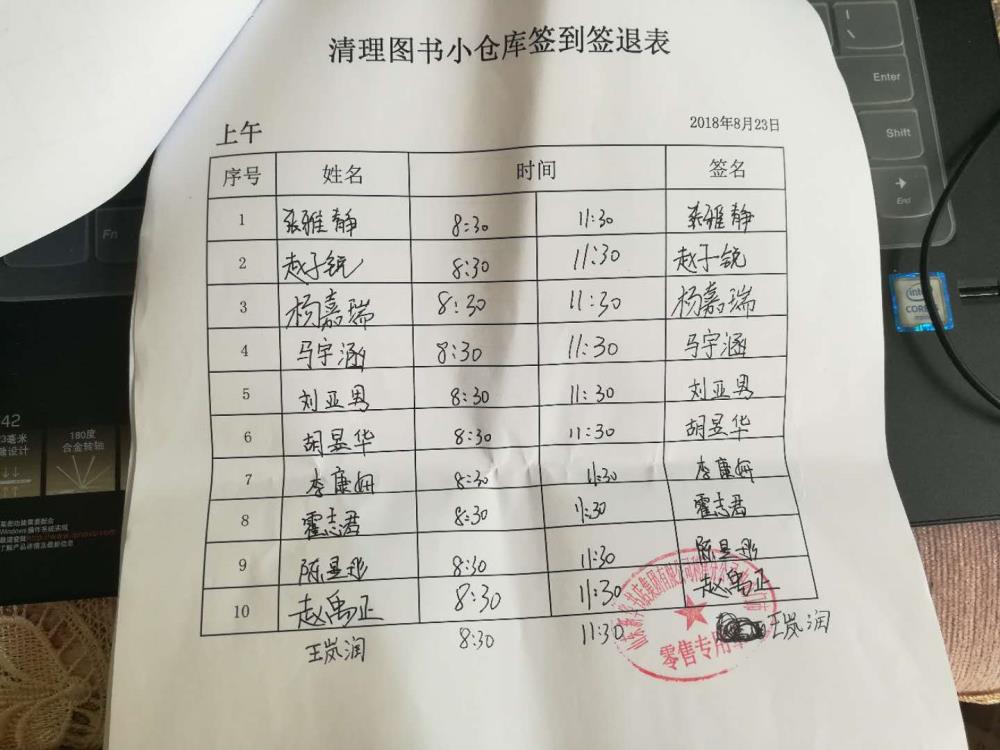 清理图书小仓库签到签退表
上午 2018年8月23日
序号 姓名 时间 签名
1 张雅静 8:30 11:30 张雅静
2 赵子锐 8:30 11:30 赵子锐
3 杨嘉瑞 8:30 11:30 杨嘉瑞
4 马宇涵 8:30 11:30 马宇涵
5 刘亚男 8:30 11:30 刘亚男
6 胡昱华 8:30 11:30 胡昱华
7 李康妍 8:30 11:30 李康妍
8 霍志君 8:30 11:30 霍志君
9 陈昱彤 8:30 11:30 陈昱彤
10 赵禹正 8:30 11:30 赵禹正
王岚润 8:30 11:30 王岚润
零售专用
Enter
Shift
End
Fn
intel
CORE
42
3毫米
180度
合金转轴